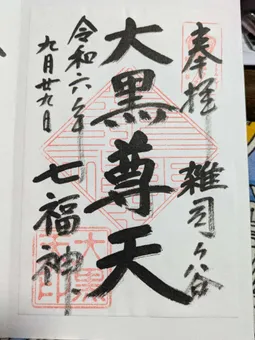 奉拝
雑司ヶ谷
大黒尊天
七福神
令和六年
九月廿九日